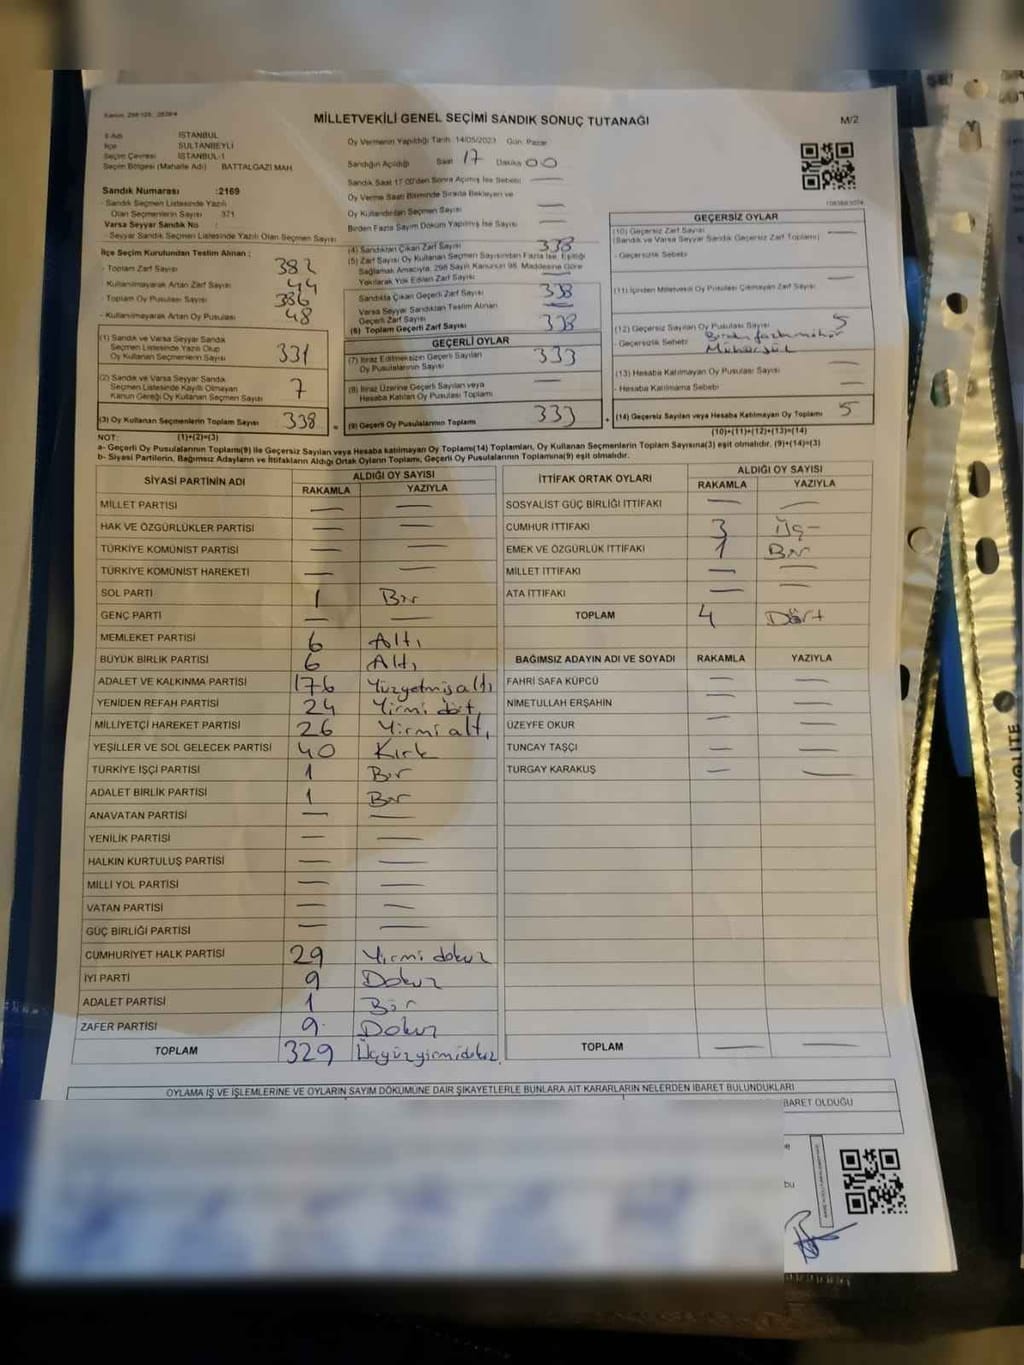 MİLLETVEKİLİ GENEL SEÇİMİ SANDIK SONUÇ TUTANAĞI
M/2
İli Adı İSTANBUL
İlçe SULTANBEYLİ
Seçim Çevresi İSTANBUL-1
Seçim Bölgesi (Mahalle Adı) BATTALGAZI MAH
Sandık Numarası :2169
- Sandık Seçmen Listesinde Yazılı
Olan Seçmenlerin Sayısı 371
Varsa Seyyar Sandık No :
- Seyyar Sandık Seçmen Listesinde Yazılı Olan Seçmen Sayısı
İlçe Seçim Kurulundan Teslim Alınan :
- Toplam Zarf Sayısı 382
- Kullanılmayarak Artan Zarf Sayısı 44
- Toplam Oy Pusulası Sayısı 386
- Kullanılmayarak Artan Oy Pusulası 48
(1) Sandık ve Varsa Seyyar Sandık
Seçmen Listesinde Yazılı Olup
Oy Kullanan Seçmenlerin Sayısı 331
(2) Sandık ve Varsa Seyyar Sandık
Seçmen Listesinde Kayıtlı Olmayan
Kanun Gereği Oy Kullanan Seçmen Sayısı 7
(3) Oy Kullanan Seçmenlerin Toplam Sayısı 338
(1)+(2)=(3)
Oy Vermenin Yapıldığı Tarih 14/05/2023 Gün Pazar
Sandığın Açıldığı Saat 17 Dakika 00
Sandık Saat 17.00'den Sonra Açılmış İse Sebebi —
Oy Verme Saati Bitiminde Sırada Bekleyen ve
Oy Kullandırılan Seçmen Sayısı —
Birden Fazla Sayım Döküm Yapılmış İse Sayısı —
(4) Sandıktan Çıkan Zarf Sayısı 338
(5) Zarf Sayısı Oy Kullanan Seçmen Sayısından Fazla İse, Eşitliği
Sağlamak Amacıyla, 298 Sayılı Kanunun 98. Maddesine Göre
Yakılarak Yok Edilen Zarf Sayısı —
Sandıkta Çıkan Geçerli Zarf Sayısı 338
Varsa Seyyar Sandıktan Teslim Alınan
Geçerli Zarf Sayısı —
(6) Toplam Geçerli Zarf Sayısı 338
GEÇERLİ OYLAR
(7) İtiraz Edilmeksizin Geçerli Sayılan
Oy Pusulalarının Sayısı 333
(8) İtiraz Üzerine Geçerli Sayılan veya
Hesaba Katılan Oy Pusulası Toplamı —
(9) Geçerli Oy Pusulalarının Toplamı 333
GEÇERSİZ OYLAR
(10) Geçersiz Zarf Sayısı —
(Sandık ve Varsa Seyyar Sandık Geçersiz Zarf Toplamı)
- Geçersizlik Sebebi —
(11) İçinden Milletvekili Oy Pusulası Çıkmayan Zarf Sayısı —
(12) Geçersiz Sayılan Oy Pusulası Sayısı 5
- Geçersizlik Sebebi
(13) Hesaba Katılmayan Oy Pusulası Sayısı —
- Hesaba Katılmama Sebebi —
(14) Geçersiz Sayılan veya Hesaba Katılmayan Oy Toplamı 5
(10)+(11)+(12)+(13)=(14)
NOT:
a- Geçerli Oy Pusulalarının Toplamı(9) ile Geçersiz Sayılan veya Hesaba katılmayan Oy Toplamı(14) Toplamları, Oy Kullanan Seçmenlerin Toplam Sayısına(3) eşit olmalıdır. (9)+(14)=(3)
b- Siyasi Partilerin, Bağımsız Adayların ve İttifakların Aldığı Ortak Oyların Toplamı, Geçerli Oy Pusulalarının Toplamına(9) eşit olmalıdır.
SİYASİ PARTİNİN ADI ALDIĞI OY SAYISI
RAKAMLA YAZIYLA
MİLLET PARTİSİ — —
HAK VE ÖZGÜRLÜKLER PARTİSİ — —
TÜRKİYE KOMÜNİST PARTİSİ — —
TÜRKİYE KOMÜNİST HAREKETİ — —
SOL PARTİ 1 Bir
GENÇ PARTİ — —
MEMLEKET PARTİSİ 6 Altı
BÜYÜK BİRLİK PARTİSİ 6 Altı
ADALET VE KALKINMA PARTİSİ 176 Yüzyetmişaltı
YENİDEN REFAH PARTİSİ 24 Yirmi dört
MİLLİYETÇİ HAREKET PARTİSİ 26 Yirmi altı
YEŞİLLER VE SOL GELECEK PARTİSİ 40 Kırk
TÜRKİYE İŞÇİ PARTİSİ 1 Bir
ADALET BİRLİK PARTİSİ 1 Bir
ANAVATAN PARTİSİ — —
YENİLİK PARTİSİ — —
HALKIN KURTULUŞ PARTİSİ — —
MİLLİ YOL PARTİSİ — —
VATAN PARTİSİ — —
GÜÇ BİRLİĞİ PARTİSİ — —
CUMHURİYET HALK PARTİSİ 29 Yirmi dokuz
İYİ PARTİ 9 Dokuz
ADALET PARTİSİ 1 Bir
ZAFER PARTİSİ 9 Dokuz
TOPLAM 329 Üçyüzyirmidokuz
İTTİFAK ORTAK OYLARI ALDIĞI OY SAYISI
RAKAMLA YAZIYLA
SOSYALİST GÜÇ BİRLİĞİ İTTİFAKI — —
CUMHUR İTTİFAKI 3 Üç -
EMEK VE ÖZGÜRLÜK İTTİFAKI 1 Bir
MİLLET İTTİFAKI — —
ATA İTTİFAKI — —
TOPLAM 4 Dört
BAĞIMSIZ ADAYIN ADI VE SOYADI RAKAMLA YAZIYLA
FAHRİ SAFA KÜPCÜ — —
NİMETULLAH ERŞAHİN — —
ÜZEYFE OKUR — —
TUNCAY TAŞÇI — —
TURGAY KARAKUŞ — —
TOPLAM — —
OYLAMA İŞ VE İŞLEMLERİNE VE OYLARIN SAYIM DÖKÜMÜNE DAİR ŞİKAYETLERLE BUNLARA AİT KARARLARIN NELERDEN İBARET BULUNDUKLARI
BARET OLDUĞU